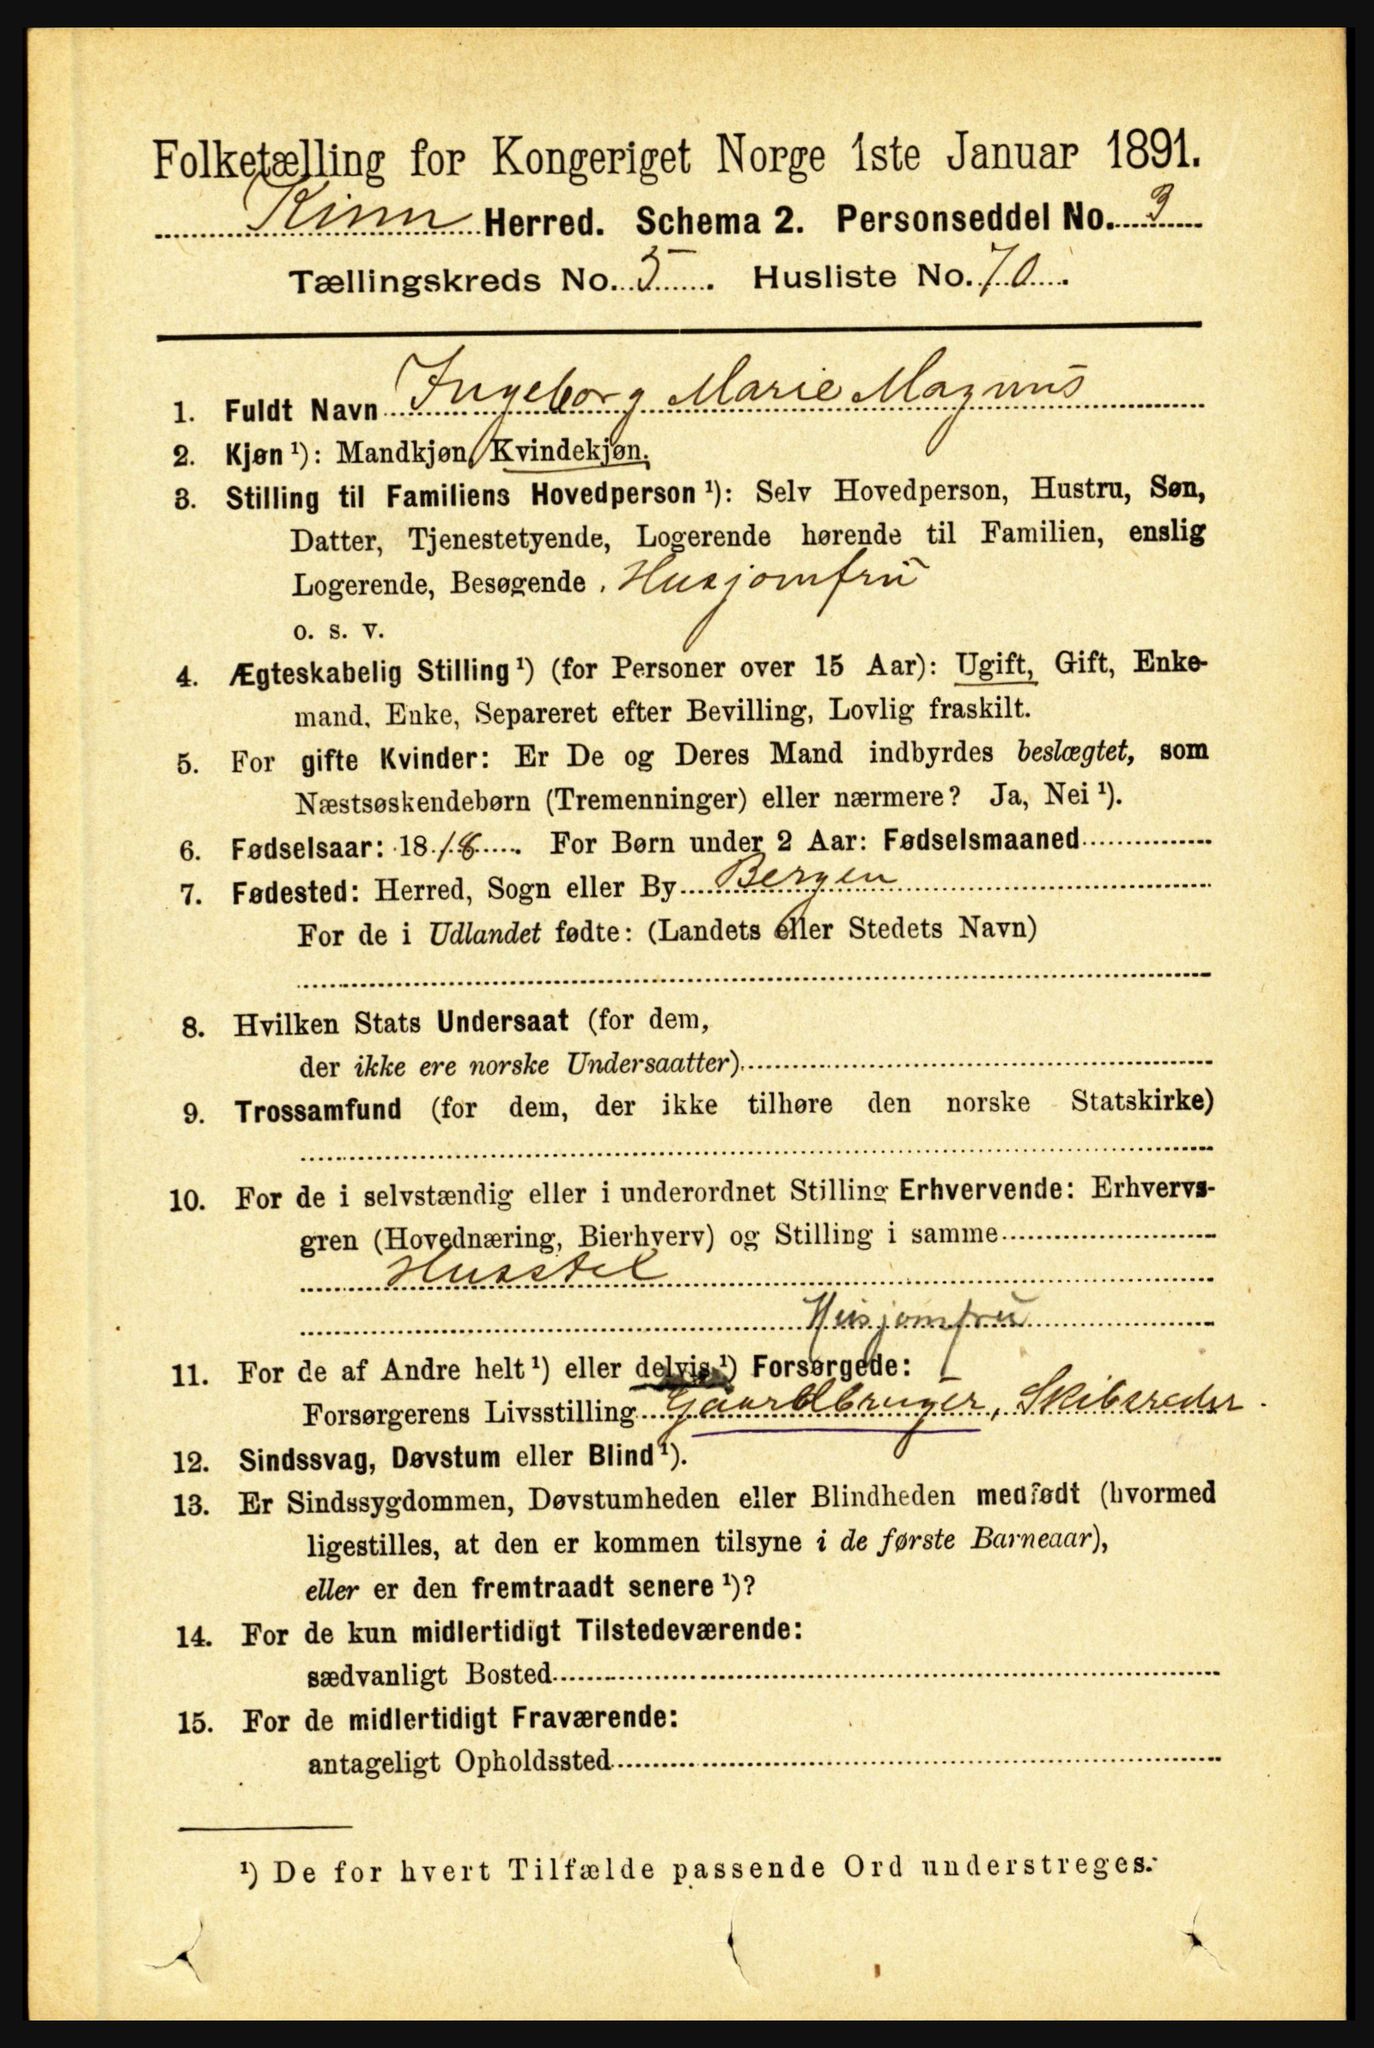 Folketælling for Kongeriget Norge 1ste Januar 1891.
Kinn Herred. Schema 2. Personseddel No. 3
Tællingskreds No. 5. Husliste No. 70.
1. Fuldt Navn Ingeborg Marie Magnus
2. Kjøn ¹): Mandkjøn, Kvindekjøn.
3. Stilling til Familiens Hovedperson ¹): Selv Hovedperson, Hustru, Søn,
Datter, Tjenestetyende, Logerende hørende til Familien, enslig
Logerende, Besøgende . Husjomfru
o. s. v.
4. Ægteskabelig Stilling ¹) (for Personer over 15 Aar): Ugift, Gift, Enke-
mand, Enke, Separeret efter Bevilling, Lovlig fraskilt.
5. For gifte Kvinder: Er De og Deres Mand indbyrdes beslægtet, som
Næstsøskendebørn (Tremenninger) eller nærmere? Ja, Nei ¹).
6. Fødselsaar: 18 18. For Børn under 2 Aar: Fødselsmaaned
7. Fødested: Herred, Sogn eller By Bergen
For de i Udlandet fødte: (Landets eller Stedets Navn)
8. Hvilken Stats Undersaat (for dem,
der ikke ere norske Undersaatter)
9. Trossamfund (for dem, der ikke tilhøre den norske Statskirke)
10. For de i selvstændig eller i underordnet Stilling Erhvervende: Erhvervs-
gren (Hovednæring, Bierhverv) og Stilling i samme
Husstel
Husjomfru
11. For de af Andre helt ¹) eller delvis ¹) Forsørgede:
Forsørgerens Livsstilling Gaardbruger, Skibsreder.
12. Sindssvag, Døvstum eller Blind ¹).
13. Er Sindssygdommen, Døvstumheden eller Blindheden medfødt (hvormed
ligestilles, at den er kommen tilsyne i de første Barneaar),
eller er den fremtraadt senere ¹)?
14. For de kun midlertidigt Tilstedeværende:
sædvanligt Bosted
15. For de midlertidigt Fraværende:
antageligt Opholdssted
¹) De for hvert Tilfælde passende Ord understreges.